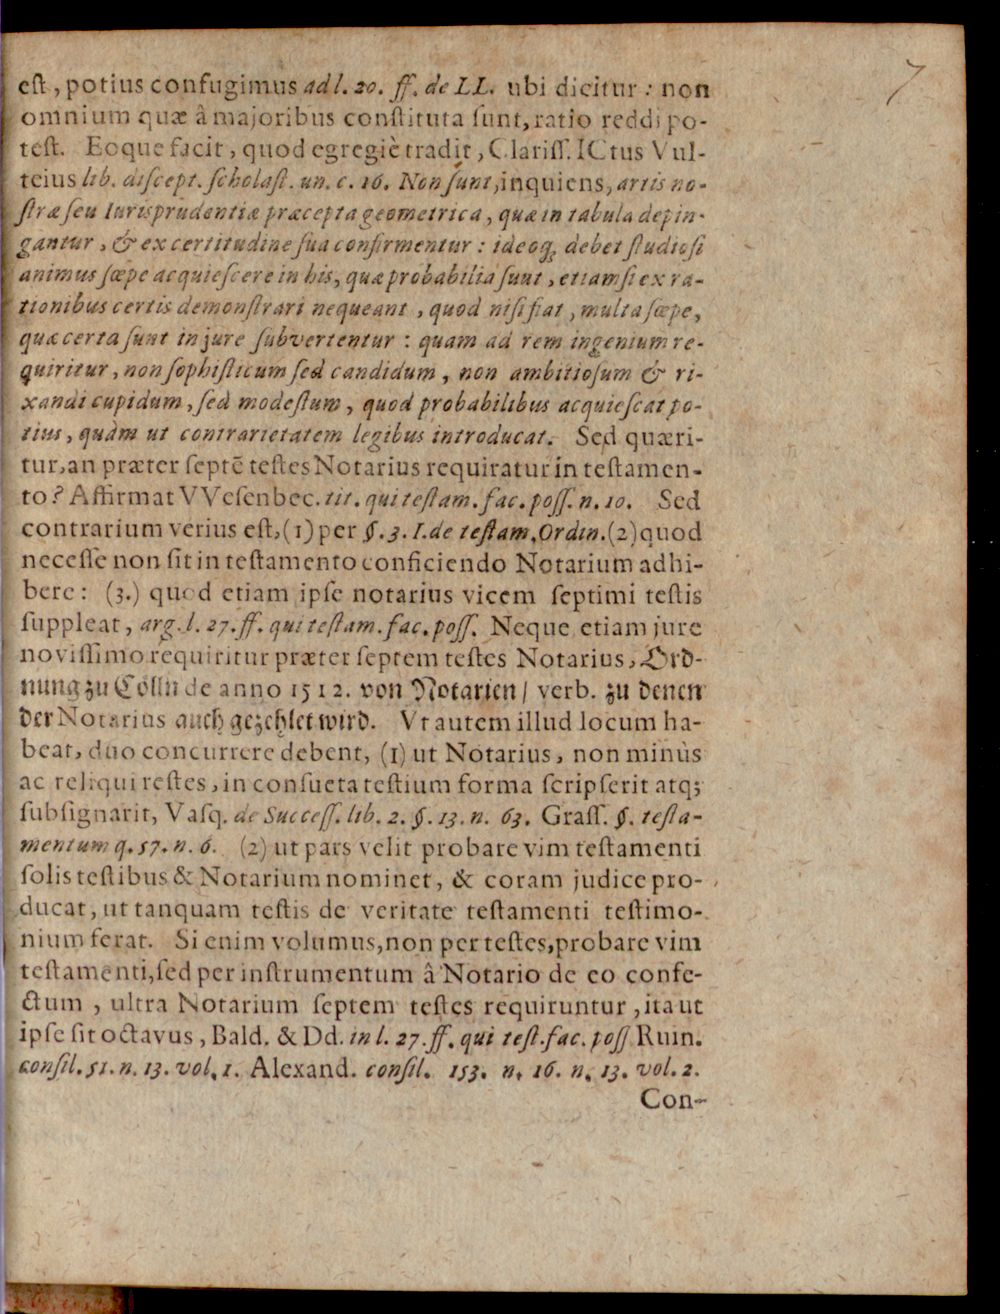 7
est, potius confugimus ad l. 20. ff. de LL. ubi dicitur: non
omnium quæ â majoribus constituta sunt, ratio reddi po-
test. Eoque facit, quod egregiè tradit, Clariss. ICtus Vul-
teius lib. discept. scholast. un. c. 16. Non sunt, inquiens, artis no-
stræ seu Iurisprudentiæ præcepta geometrica, quæ in tabula depin-
gantur, & ex certitudine sua confirmentur: ideoq; debet studiosi
animus sœpe acquiescere in his, quæ probabilia sunt, etiamsi ex ra-
tionibus certis demonstrari nequeant, quod nisi fiat, multa sœpe,
quæ certa sunt in jure subvertentur: quam ad rem ingenium re-
quiritur, non sophisticum sed candidum, non ambitiosum & ri-
xandi cupidum, sed modestum, quod probabilibus acquiescat po-
tius, quàm ut contrarietatem legibus introducat. Sed quæri-
tur, an præter septē testes Notarius requiratur in testamen-
to? Affirmat VVesenbec. tit. qui testam. fac. poss. n. 10. Sed
contrarium verius est, (1) per §. 3. I. de testam. Ordin. (2) quod
necesse non sit in testamento conficiendo Notarium adhi-
bere: (3.) quod etiam ipse notarius vicem septimi testis
suppleat, arg. l. 27. ff. qui testam. fac. poss. Neque etiam jure
novissimo requiritur præter septem testes Notarius, Ord-
nung zu Cölln de anno 1512. von Notarien/ verb. zu denen
der Notarius auch gezehlet wird. Vt autem illud locum ha-
beat, duo concurrere debent, (1) ut Notarius, non minùs
ac reliqui testes, in consueta testium forma scripserit atq;
subsignarit, Vasq. de Success. lib. 2. §. 13. n. 63. Grass. §. testa-
mentum q. 57. n. 6. (2) ut pars velit probare vim testamenti
solis testibus & Notarium nominet, & coram judice pro-
ducat, ut tanquam testis de veritate testamenti testimo-
nium ferat. Si enim volumus, non per testes, probare vim
testamenti, sed per instrumentum â Notario de eo confe-
ctum, ultra Notarium septem testes requiruntur, ita ut
ipse sit octavus, Bald. & Dd. in l. 27. ff. qui test. fac. poss Ruin.
consil. 51. n. 13. vol. 1. Alexand. consil. 153. n. 16. n. 13. vol. 2.
Con-